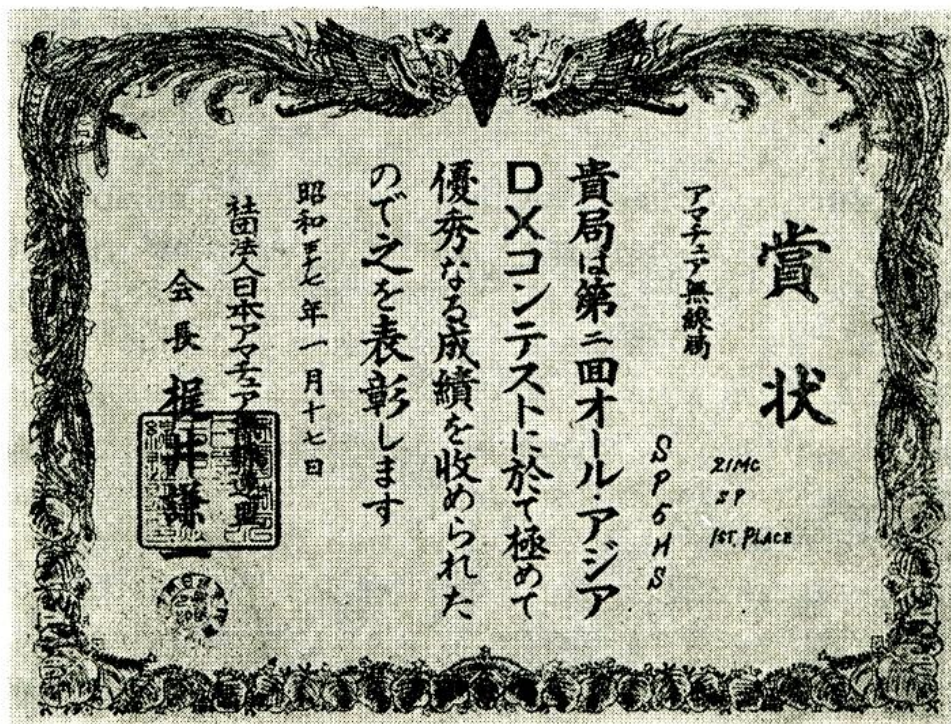 賞状
アマチュア無線局
21MC
SP
1ST. PLACE
SP5HS
貴局は第二回オール・アジア
DXコンテストに於て極めて
優秀なる成績を収められた
ので之を表彰します
昭和三十七年一月十七日
社団法人日本アマチュア無線連盟
会長 梶井謙一